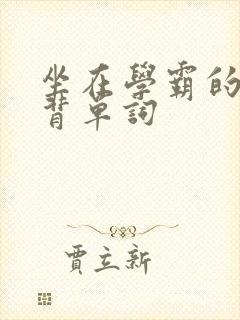 坐在學霸的
背單詞
賈立新